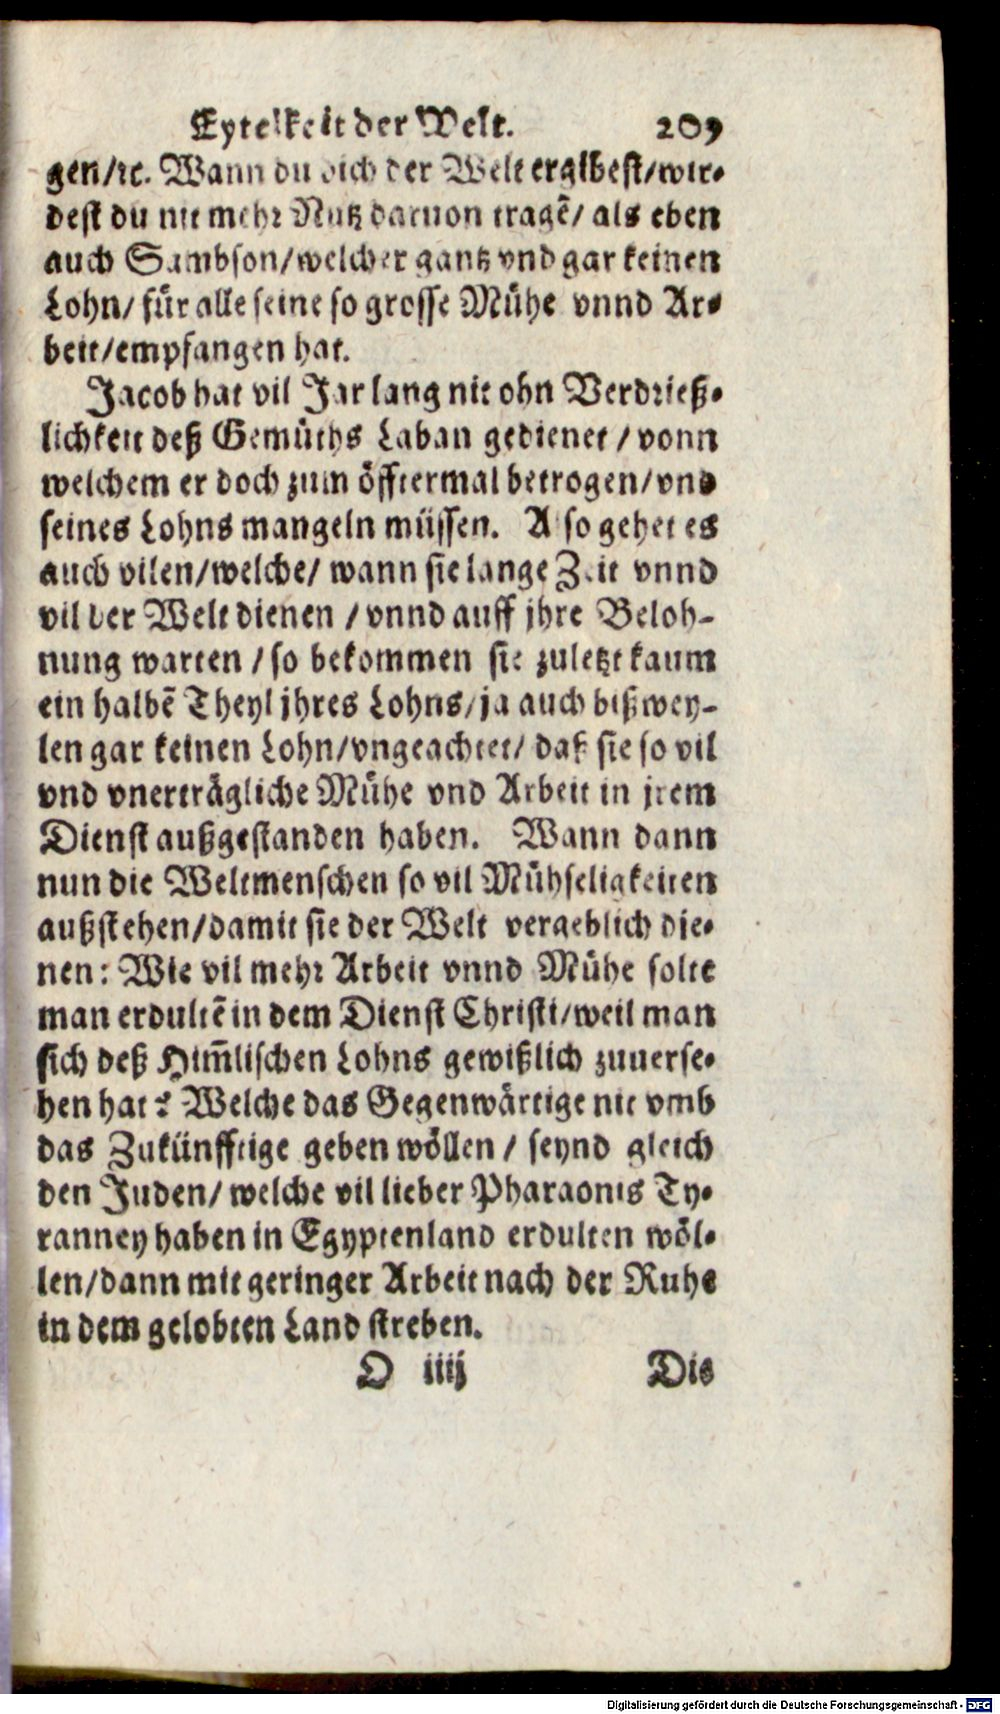 Eytelkeit der Welt. 209
gen/ꝛc. Wann du dich der Welt ergibest/wir⸗
dest du nit mehꝛ Nutz daruon tragẽ/ als eben
auch Sambson/welcher gantz vnd gar keinen
Lohn/ für alle seine so grosse Mühe vnnd Ar⸗
beit/empfangen hat.
Jacob hat vil Jar lang nit ohn Verdꝛieß⸗
lichkeit deß Gemüths Laban gedienet / vonn
welchem er doch zum öfftermal betrogen/vnd
seines Lohns mangeln müssen. Also gehet es
auch vilen/welche/ wann sie lange Zeit vnnd
vil der Welt dienen / vnnd auff jhre Beloh⸗
nung warten / so bekommen sie zuletzt kaum
ein halbẽ Theyl jhres Lohns/ja auch bißwey⸗
len gar keinen Lohn/vngeachtet/ daß sie so vil
vnd vnerträgliche Mühe vnd Arbeit in jrem
Dienst außgestanden haben. Wann dann
nun die Weltmenschen so vil Mühseligkeiten
außstehen/damit sie der Welt vergeblich die⸗
nen: Wie vil mehꝛ Arbeit vnnd Mühe solte
man erdultẽ in dem Dienst Christi/weil man
sich deß Him̃lischen Lohns gewißlich zuuerse⸗
hen hat? Welche das Gegenwärtige nit vmb
das Zukünfftige geben wöllen / seynd gleich
den Juden/ welche vil lieber Pharaonis Ty⸗
ranney haben in Egyptenland erdulten wöl⸗
len/dann mit geringer Arbeit nach der Ruhe
in dem gelobten Land streben.
O iiij Dis
Digitalisierung gefördert durch die Deutsche Forschungsgemeinschaft - DFG